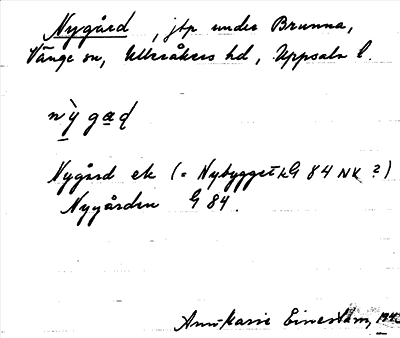 Nygård, jtp under Brunna,
Vänge sn, Ulleråkers hd, Uppsala l.
nỳ gaɖ
Nygård ek (= Nybygget kG 84 NK ?)
Nygården G 84.
Ann-Marie Einerstam,